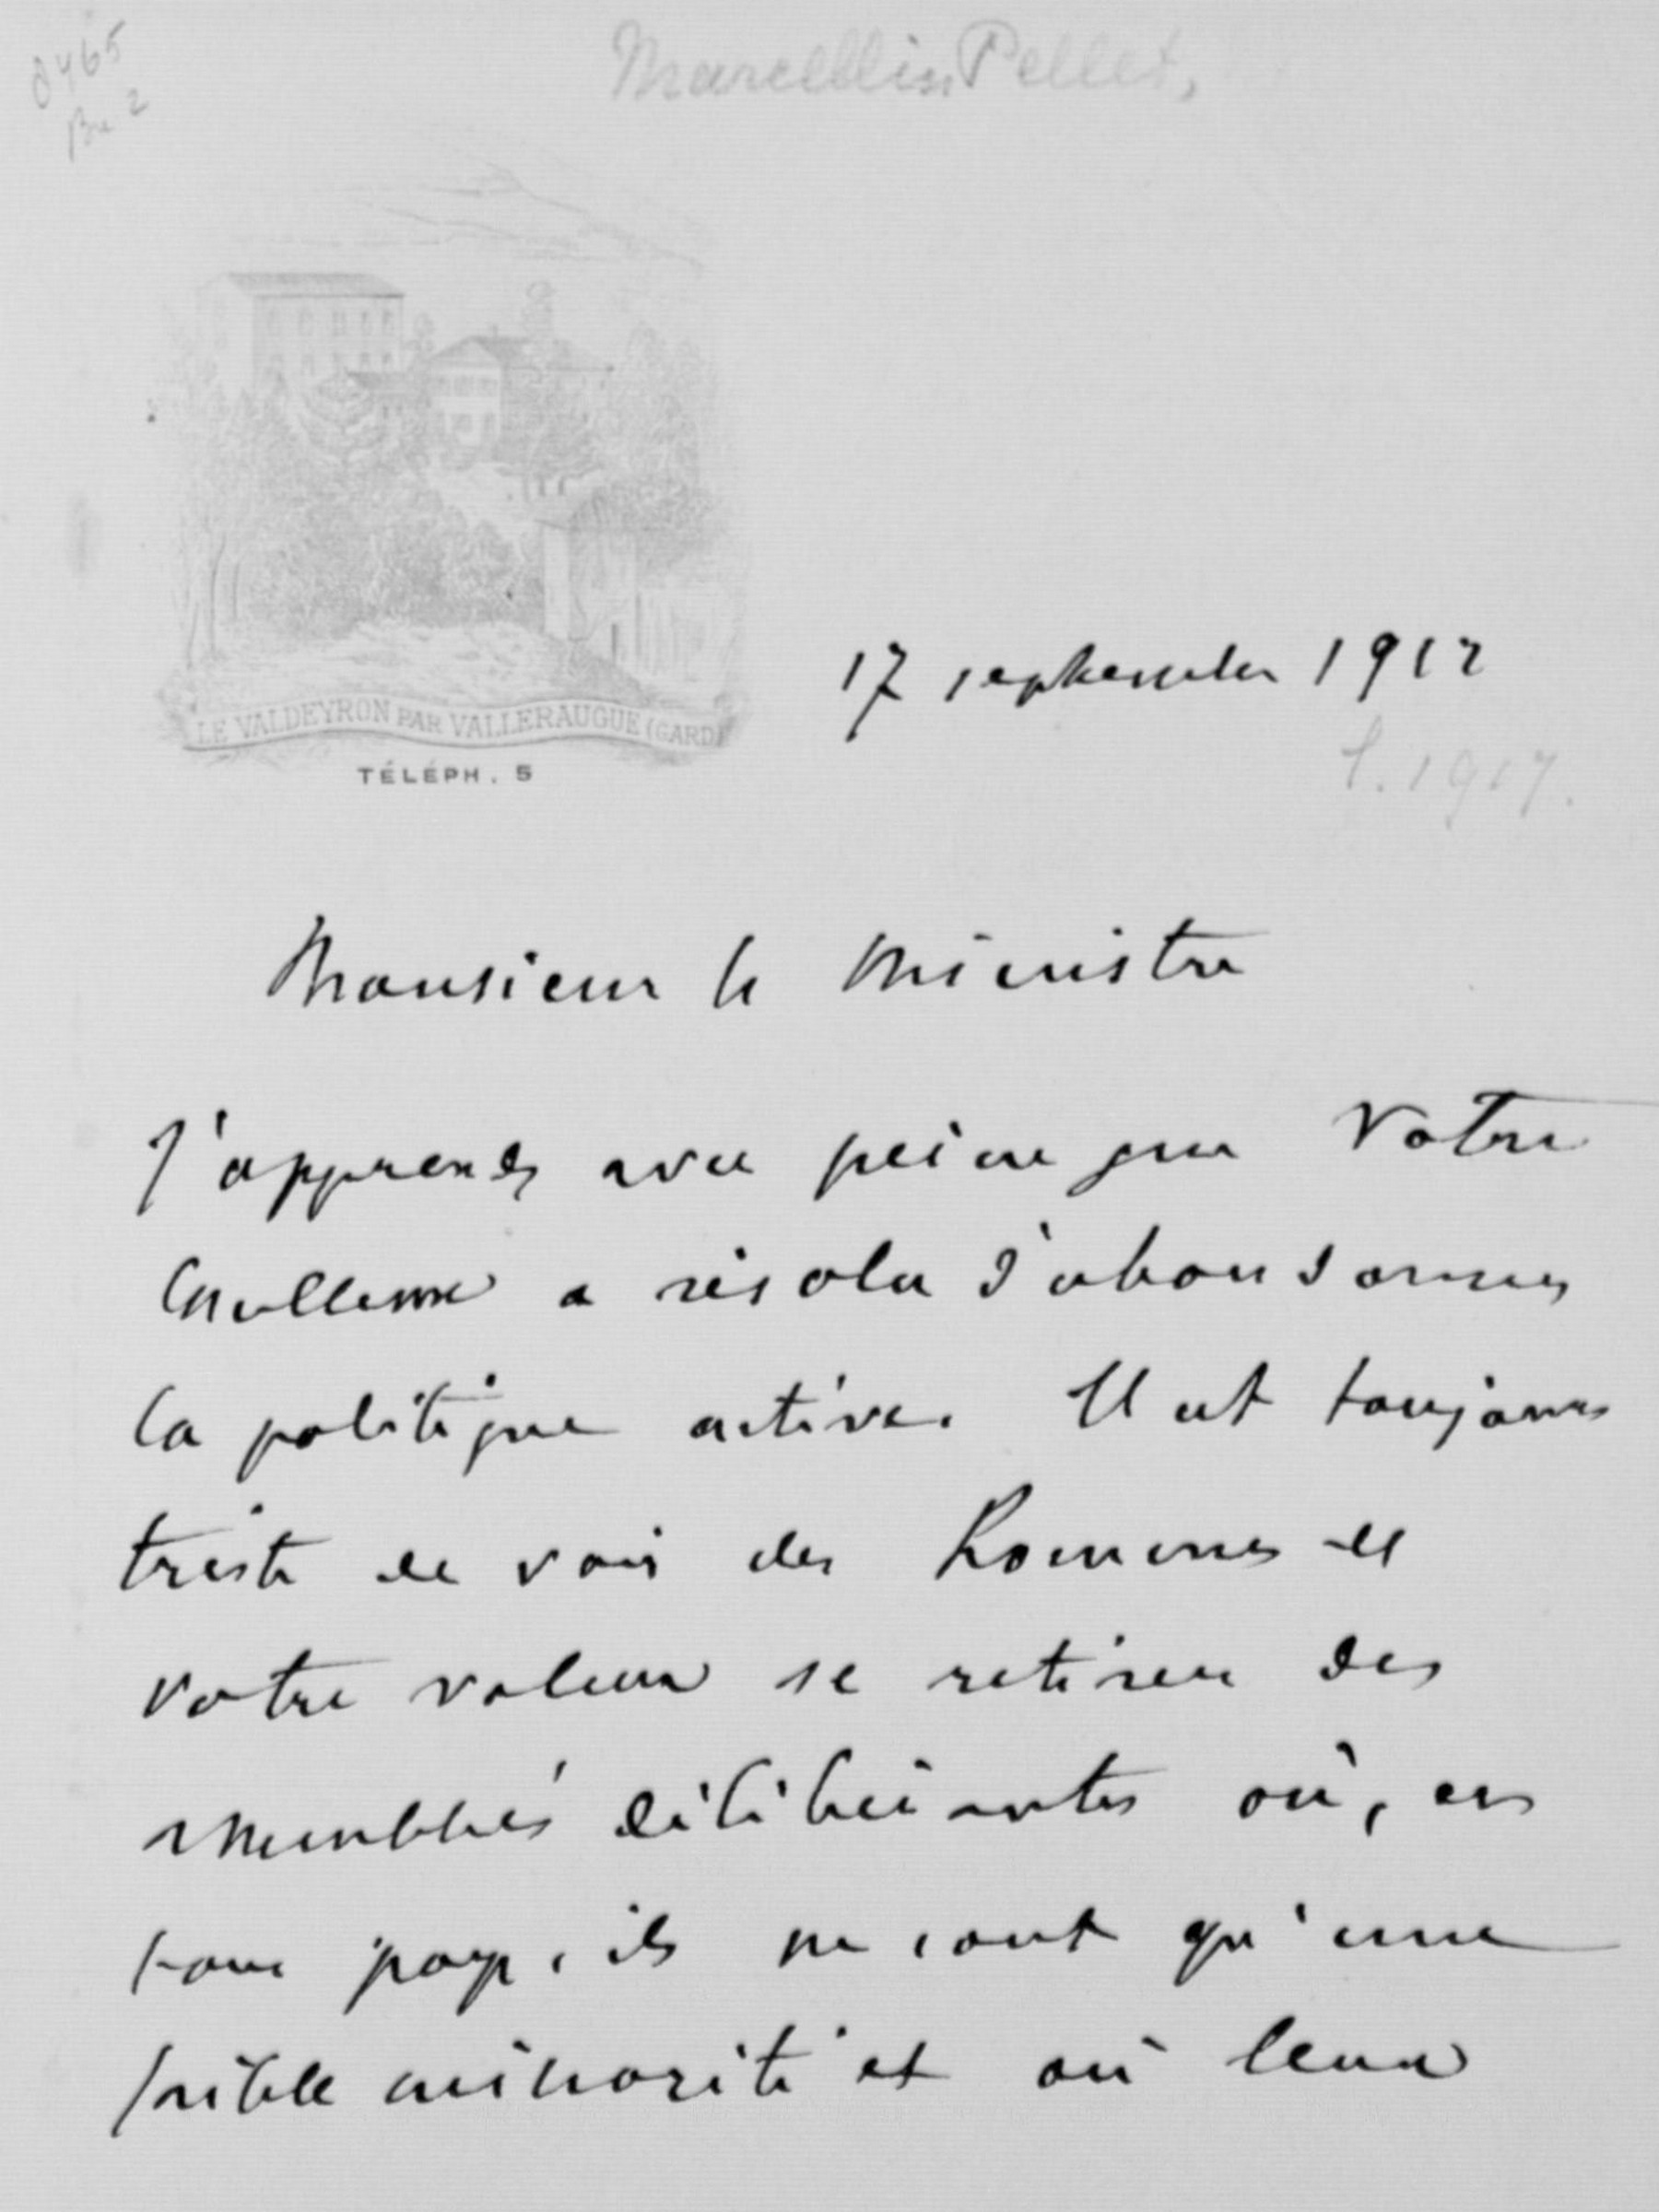 8465
Bu 2
Marcellin Pellet,
LE VALDEYRON PAR VALLERAUGUE (GARD)
TÉLÉPH. 5
17 septembre 1917
1917.
Monsieur le Ministre
J'apprends avec peine que Votre
Excellence a résolu d'abandonner
la politique active. Il est toujours
triste de voir des hommes de
votre valeur se retirer des
assemblées délibérantes où, en
tous pays, ils ne sont qu'une
faible minorité et où leur